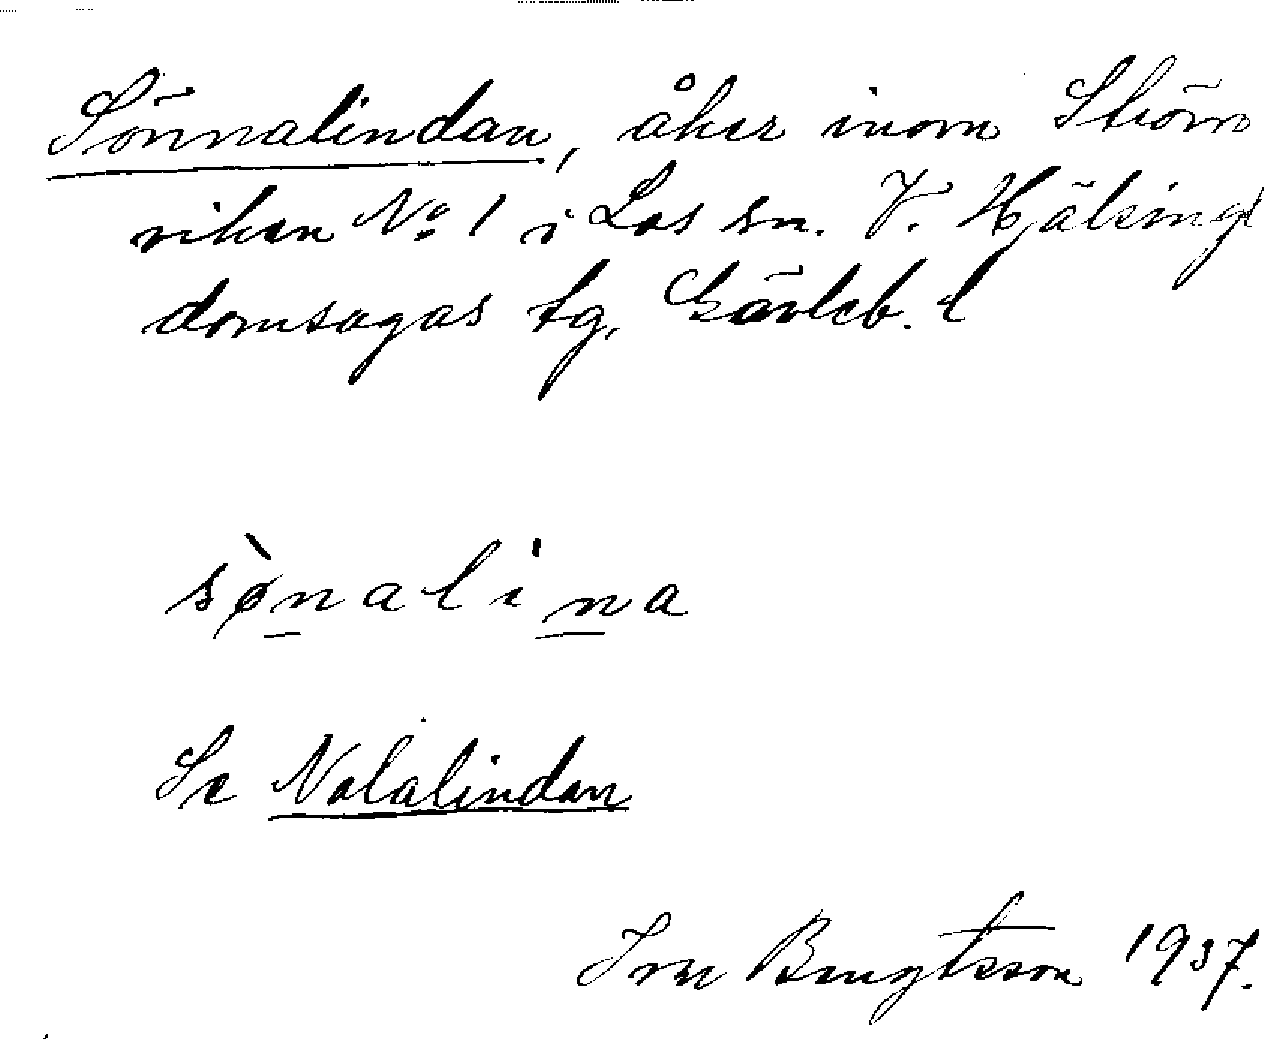 Sönnalindan, åker inom Ström
riken No 1 i Los sn. V. Hälsingl
domsagas tg, Gävleb. l
sø̀nalina
Se Nolalindan
Ivar Bengtsson 1937.